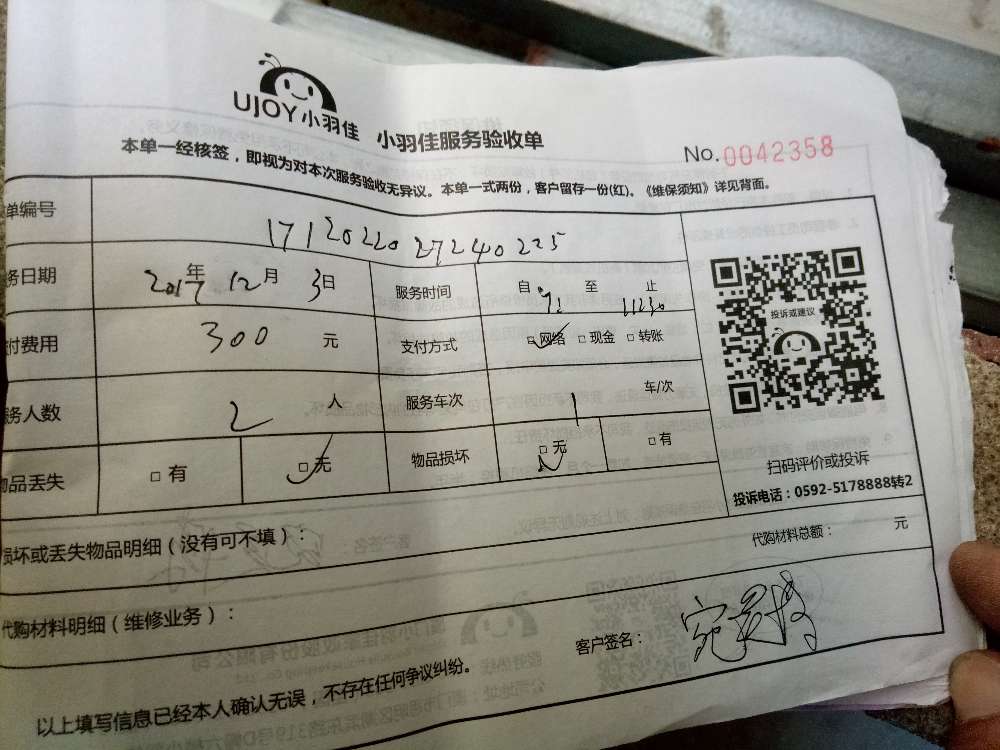 UJOY小羽佳 小羽佳服务验收单
No.0042358
本单一经核签，即视为对本次服务验收无异议。本单一式两份，客户留存一份(红)。《维保须知》详见背面。
单编号 1712022027240225
务日期 2017年 12月 3日 服务时间 自 至 11:30 止
付费用 300 元 支付方式 □网络 □现金 □转账
务人数 2 人 服务车次 1 车/次
物品丢失 □有 □无 物品损坏 □无 □有
投诉或建议
扫码评价或投诉
投诉电话：0592-5178888转2
损坏或丢失物品明细（没有可不填）：
代购材料总额： 元
代购材料明细（维修业务）：
客户签名：
以上填写信息已经本人确认无误，不存在任何争议纠纷。